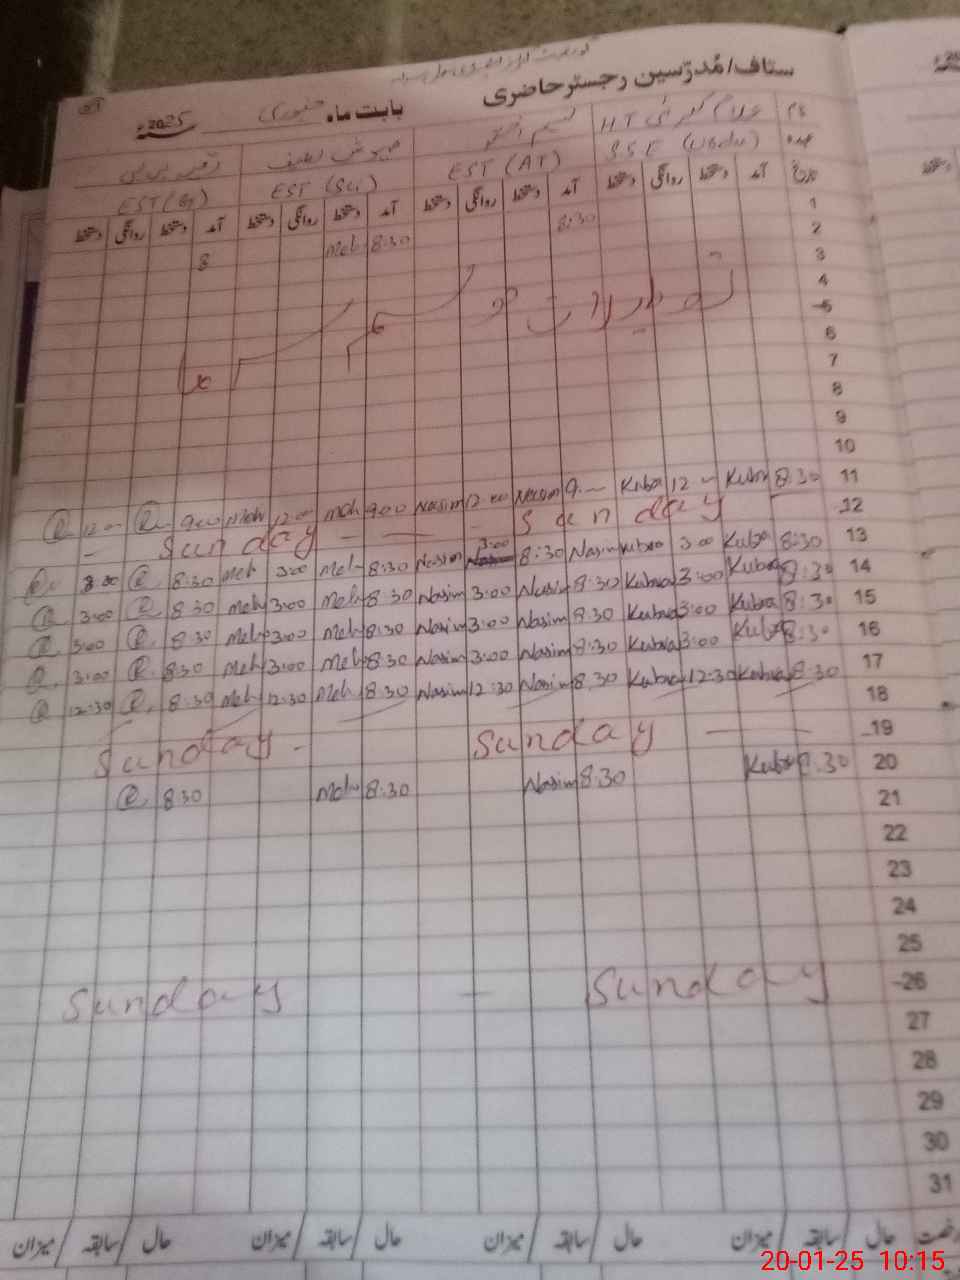 ستاف/مُدرّسین رجسٹر حاضری
بابت ماہ جنوری 2025ء
نام غلام کبریٰ HT نسیم اختر مہوش لطیف
عہدہ SSE (Urdu) EST (AT) EST (Sci) EST (
تاریخ آمد دستخط روانگی دستخط آمد دستخط روانگی دستخط آمد دستخط روانگی دستخط آمد دستخط روانگی دستخط
1
2 8:30
3 8:30 Meh 8
4
5 تعطیلات موسم سرما
6
7
8
9
10
11 8:30 Kubra 12 Kubra 9 Nasim 12:00 Nasim 9:00 Meh 12:00 Meh 9:00 12
12 Sunday Sunday
13 8:30 Kubra 3:00 Kubra Nasim 8:30 3:00 Nasim 8:30 Meh 3:00 Meh 8:30 3:00
14 8:30 Kubra 3:00 Kubra 8:30 Nasim 3:00 Nasim 8:30 Meh 3:00 Meh 8:30 3:00
15 8:30 Kubra 3:00 Kubra 8:30 Nasim 3:00 Nasim 8:30 Meh 3:00 Meh 8:30 3:00
16 8:30 Kubra 3:00 Kubra 8:30 Nasim 3:00 Nasim 8:30 Meh 3:00 Meh 8:30 3:00
17 8:30 Kubra 12:30 Kubra 8:30 Nasim 12:30 Nasim 8:30 Meh 12:30 Meh 8:30 12:30
18
19 Sunday Sunday
20 8:30 Kubra 8:30 Nasim 8:30 Meh 8:30
21
22
23
24
25
26 Sunday Sunday
27
28
29
30
31
حال سابقہ میزان حال سابقہ میزان حال سابقہ میزان حال سابقہ میزان
20-01-25 10:15